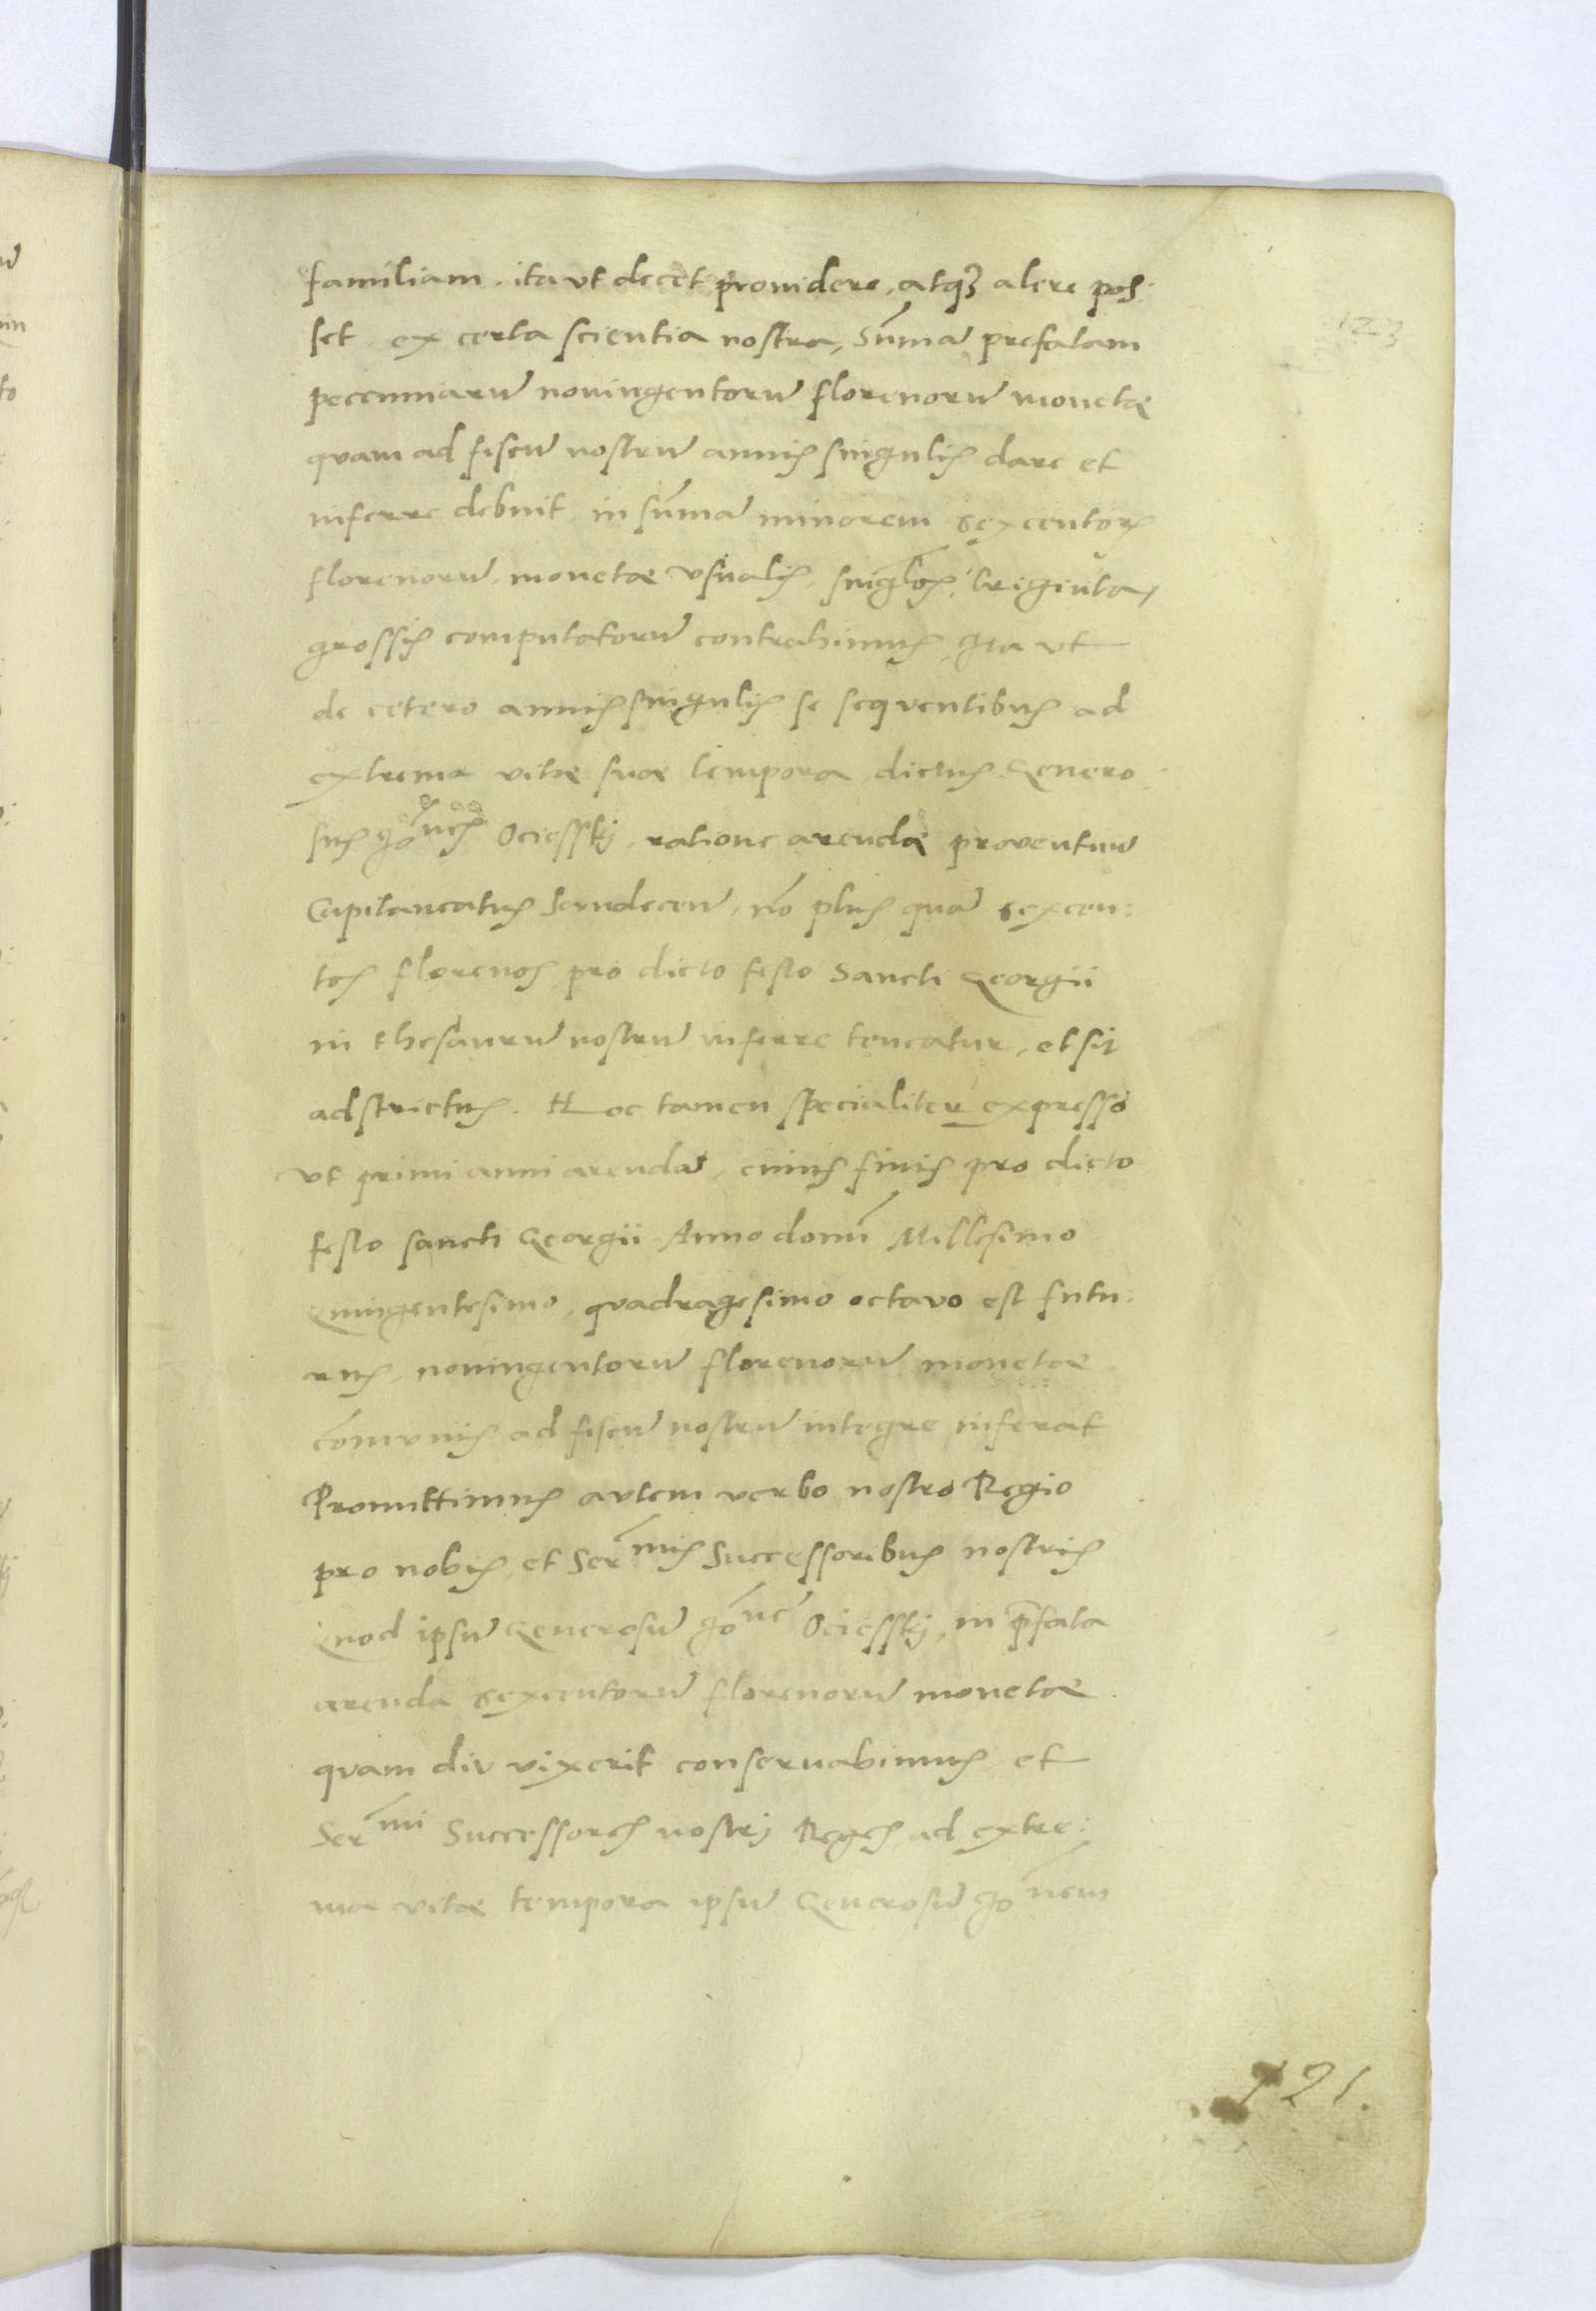 familiam. ita vt decet prouidere, atq3 alere pos:
set ex certa scientia nostra, Su̅ma̅ prefatam
peccuniaru̅ noningentoru̅ florenoru̅ monetæ
quam ad fiscu̅ nostru̅ annis singulis dare et
inferre debuit in su̅ma̅ minorem sexcentoꝝ
florenoru̅ monetæ vsualis, singl̅os triginta
grossis computatoru̅ contrahimus, Ita vt
de cetero annis singulis se sequentibus ad
extrema vitæ suæ tempora dictus Genero
sus Jo̅nes Ociessky, ratione arendæ prouentuu̅
Capitaneatus Sandecen̅, no̅ plus qua̅ sexcen:
tos florenos pro dicto festo Sancti Georgii
in thesauru̅ nostru̅ inferre teneatur, et sit
adstrictus. Hoc tamen specialiter expresso
vt primi anni arenda̅, cuius finis pro dicto
festo sancti Georgii Anno domi̅ Millesimo
Quingentesimo, quadragesimo octavo est futu:
rus, noningentoru̅ florenoru̅ monetæ
co̅mvnis ad fiscu̅ nostru̅ integre inferat
Promittimus avtem verbo nostro Regio
pro nobis et Ser̅mis Successoribus nostris
Quod ipsu̅ Generosu̅ Jo̅ne̅ Ociessky, in p̅fata
arenda sexcentoru̅ florenoru̅ monetæ
quam div vixerit conseruabimus et
Ser̅mi Successores nostrj Reges ad extre:
ma vitæ tempora ipsu̅ Generosu̅ Jo̅nem
123
121.